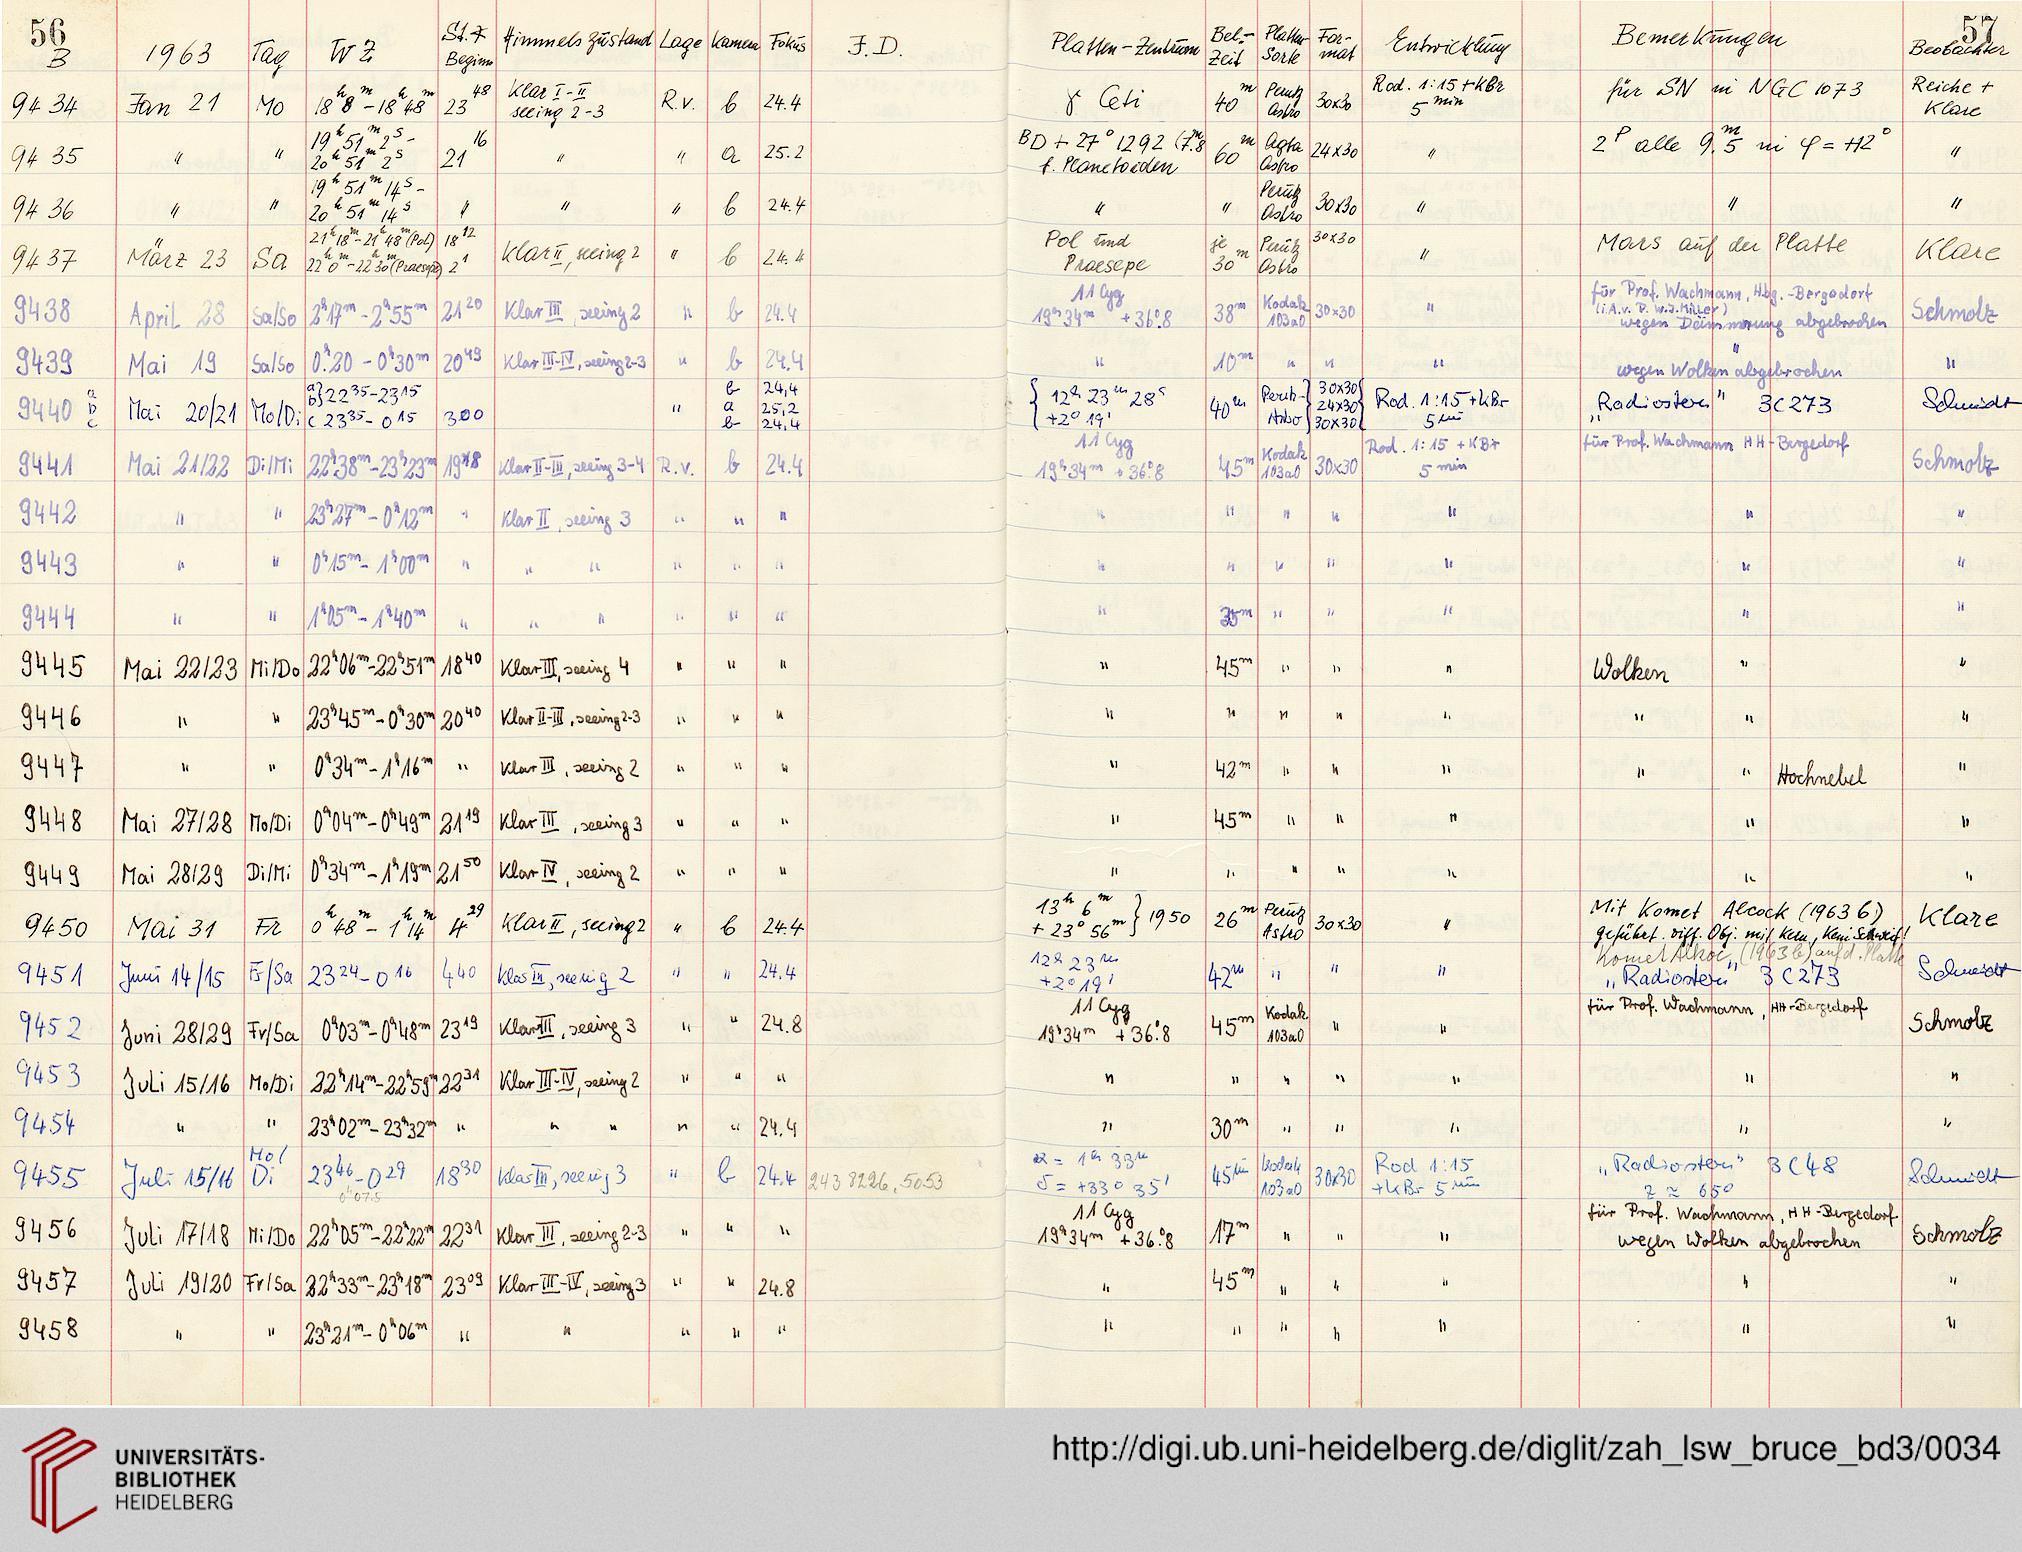 56 57
B 1963 Tag WZ St.* Beginn Himmelszustand Lage Kamera Fokus J.D. Platten-Zentrum Bel.-Zeit Platten Sorte For-mat Entwicklung Bemerkungen Beobachter
9434 Jan 21 Mo 18h 8m - 18h 48m 23 48 Klar I-II seeing 2-3 R.v. b 24.4 γ Ceti 40m Perutz Astro 30x30 Rod. 1:15 + KBr 5 min für SN in NGC 1073 Reiche + Klare
9435 " " 19h 51m 2s - 20h 51m 2s 21 16 " " a 25.2 BD + 27° 1292 (7.m8 f. Planetoiden 60m Agfa Astro 24x30 " 2P alle 9.m5 in φ = +12° "
9436 " " 19h 51m 14s - 20h 51m 14s " " " b 24.4 " " Perutz Astro 30x30 " " "
9437 März 23 Sa 21h 18m - 21h 48m (Pol) 18 12 22h 0m - 22h 30m (Praesepe) 21 Klar II, seeing 2 " b 24.4 Pol und Praesepe je 30m Perutz Astro 30x30 " Mars auf der Platte Klare
9438 April 28 Sa/So 2h17m - 2h55m 21 20 Klar III, seeing 2 " b 24.4 11 Cyg 19h34m +36°.8 38m Kodak 103a0 30x30 " für Prof. Wachmann, Hbg.-Bergedorf (i.A.v. P. W.J. Miller) wegen Dämmerung abgebrochen Schmolz
9439 Mai 19 Sa/So 0h.20 - 0h30m 20 49 Klar III-IV, seeing 2-3 " b 24.4 " 10m " " " " wegen Wolken abgebrochen "
9440 a b c Mai 20/21 Mo/Di a) b) 22 35 - 23 15 c 23 35 - 0 15 300 " b a b 24,4 25,2 24,4 12h 23m 28s +2° 19' 40m Perutz-Astro 30x30 24x30 30x30 Rod. 1:15 + KBr 5 min „Radiostern" 3C273 Schmidt
9441 Mai 21/22 Di/Mi 22h38m - 23h23m 19 48 Klar II-III, seeing 3-4 R.v. b 24.4 11 Cyg 19h34m +36°.8 45m Kodak 103a0 30x30 Rod. 1:15 + KBr 5 min für Prof. Wachmann HH-Bergedorf Schmolz
9442 " " 23h27m - 0h12m " Klar II, seeing 3 " " " " " " " " " "
9443 " " 0h15m - 1h00m " " " " " " " " " " " " "
9444 " " 1h05m - 1h40m " " " " " " " 35m " " " " "
9445 Mai 22/23 Mi/Do 22h06m - 22h51m 18 40 Klar III, seeing 4 " " " " 45m " " " Wolken " "
9446 " " 23h45m - 0h30m 20 40 Klar II-III, seeing 2-3 " " " " " " " " " " "
9447 " " 0h34m - 1h16m " Klar III, seeing 2 " " " " 42m " " " " " Hochnebel "
9448 Mai 27/28 Mo/Di 0h04m - 0h49m 21 19 Klar III, seeing 3 " " " " 45m " " " " "
9449 Mai 28/29 Di/Mi 0h34m - 1h19m 21 50 Klar IV, seeing 2 " " " " " " " " " "
9450 Mai 31 Fr 0h 48m - 1h 14m 4 29 Klar II, seeing 2 " b 24.4 13h 6m + 23° 56m } 1950 26m Perutz Astro 30x30 " Mit Komet Alcock (1963 b) geführt. diff. Obj. mit Kern, kein Schweif! Klare
9451 Juni 14/15 Fr/Sa 23 24 - 0 16 440 Klar III, seeing 2 " " 24.4 12h 23m +2° 19' 42m " " " Komet Alkoc (1963b) auf d. Platte „Radiostern" 3C273 Schmidt
9452 Juni 28/29 Fr/Sa 0h03m - 0h48m 23 19 Klar III, seeing 3 " " 24.8 11 Cyg 19h34m +36°.8 45m Kodak 103a0 " " für Prof. Wachmann, HH-Bergedorf Schmolz
9453 Juli 15/16 Mo/Di 22h14m - 22h59m 22 31 Klar III-IV, seeing 2 " " " " " " " " " "
9454 " " 23h02m - 23h32m " " " " " 24.4 " 30m " " " " "
9455 Juli 15/16 Mo/Di 23 46 - 0 29 0h07.5 18 30 Klar III, seeing 3 " b 24.4 243 8226,5053 α = 1h 33m δ = +33° 35' 45m Kodak 103a0 30x30 Rod 1:15 + KBr 5 min „Radiostern" 3C48 z ≈ 65° Schmidt
9456 Juli 17/18 Mi/Do 22h05m - 22h22m 22 31 Klar III, seeing 2-3 " " " 11 Cyg 19h34m +36°.8 17m " " " für Prof. Wachmann, HH-Bergedorf wegen Wolken abgebrochen Schmolz
9457 Juli 19/20 Fr/Sa 22h33m - 23h18m 23 09 Klar III-IV, seeing 3 " " 24.8 " 45m " " " " "
9458 " " 23h21m - 0h06m " " " " " " " " " " " "
UNIVERSITÄTS-
BIBLIOTHEK
HEIDELBERG
http://digi.ub.uni-heidelberg.de/diglit/zah_lsw_bruce_bd3/0034